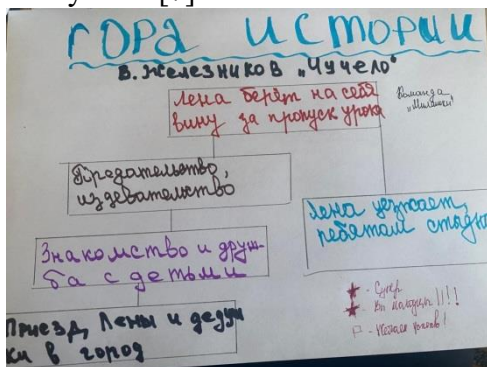 ГОРА ИСТОРИИ
В. Железников "Чучело"
Лена берёт на себя
вину за пропуск урока
Команда
Предательство,
издевательство
Лена уезжает,
ребятам стыдно
Знакомство и друж-
ба с детьми
Приезд Лены и дедуш-
ки в город
- Супер
- Вы молодцы!!!!